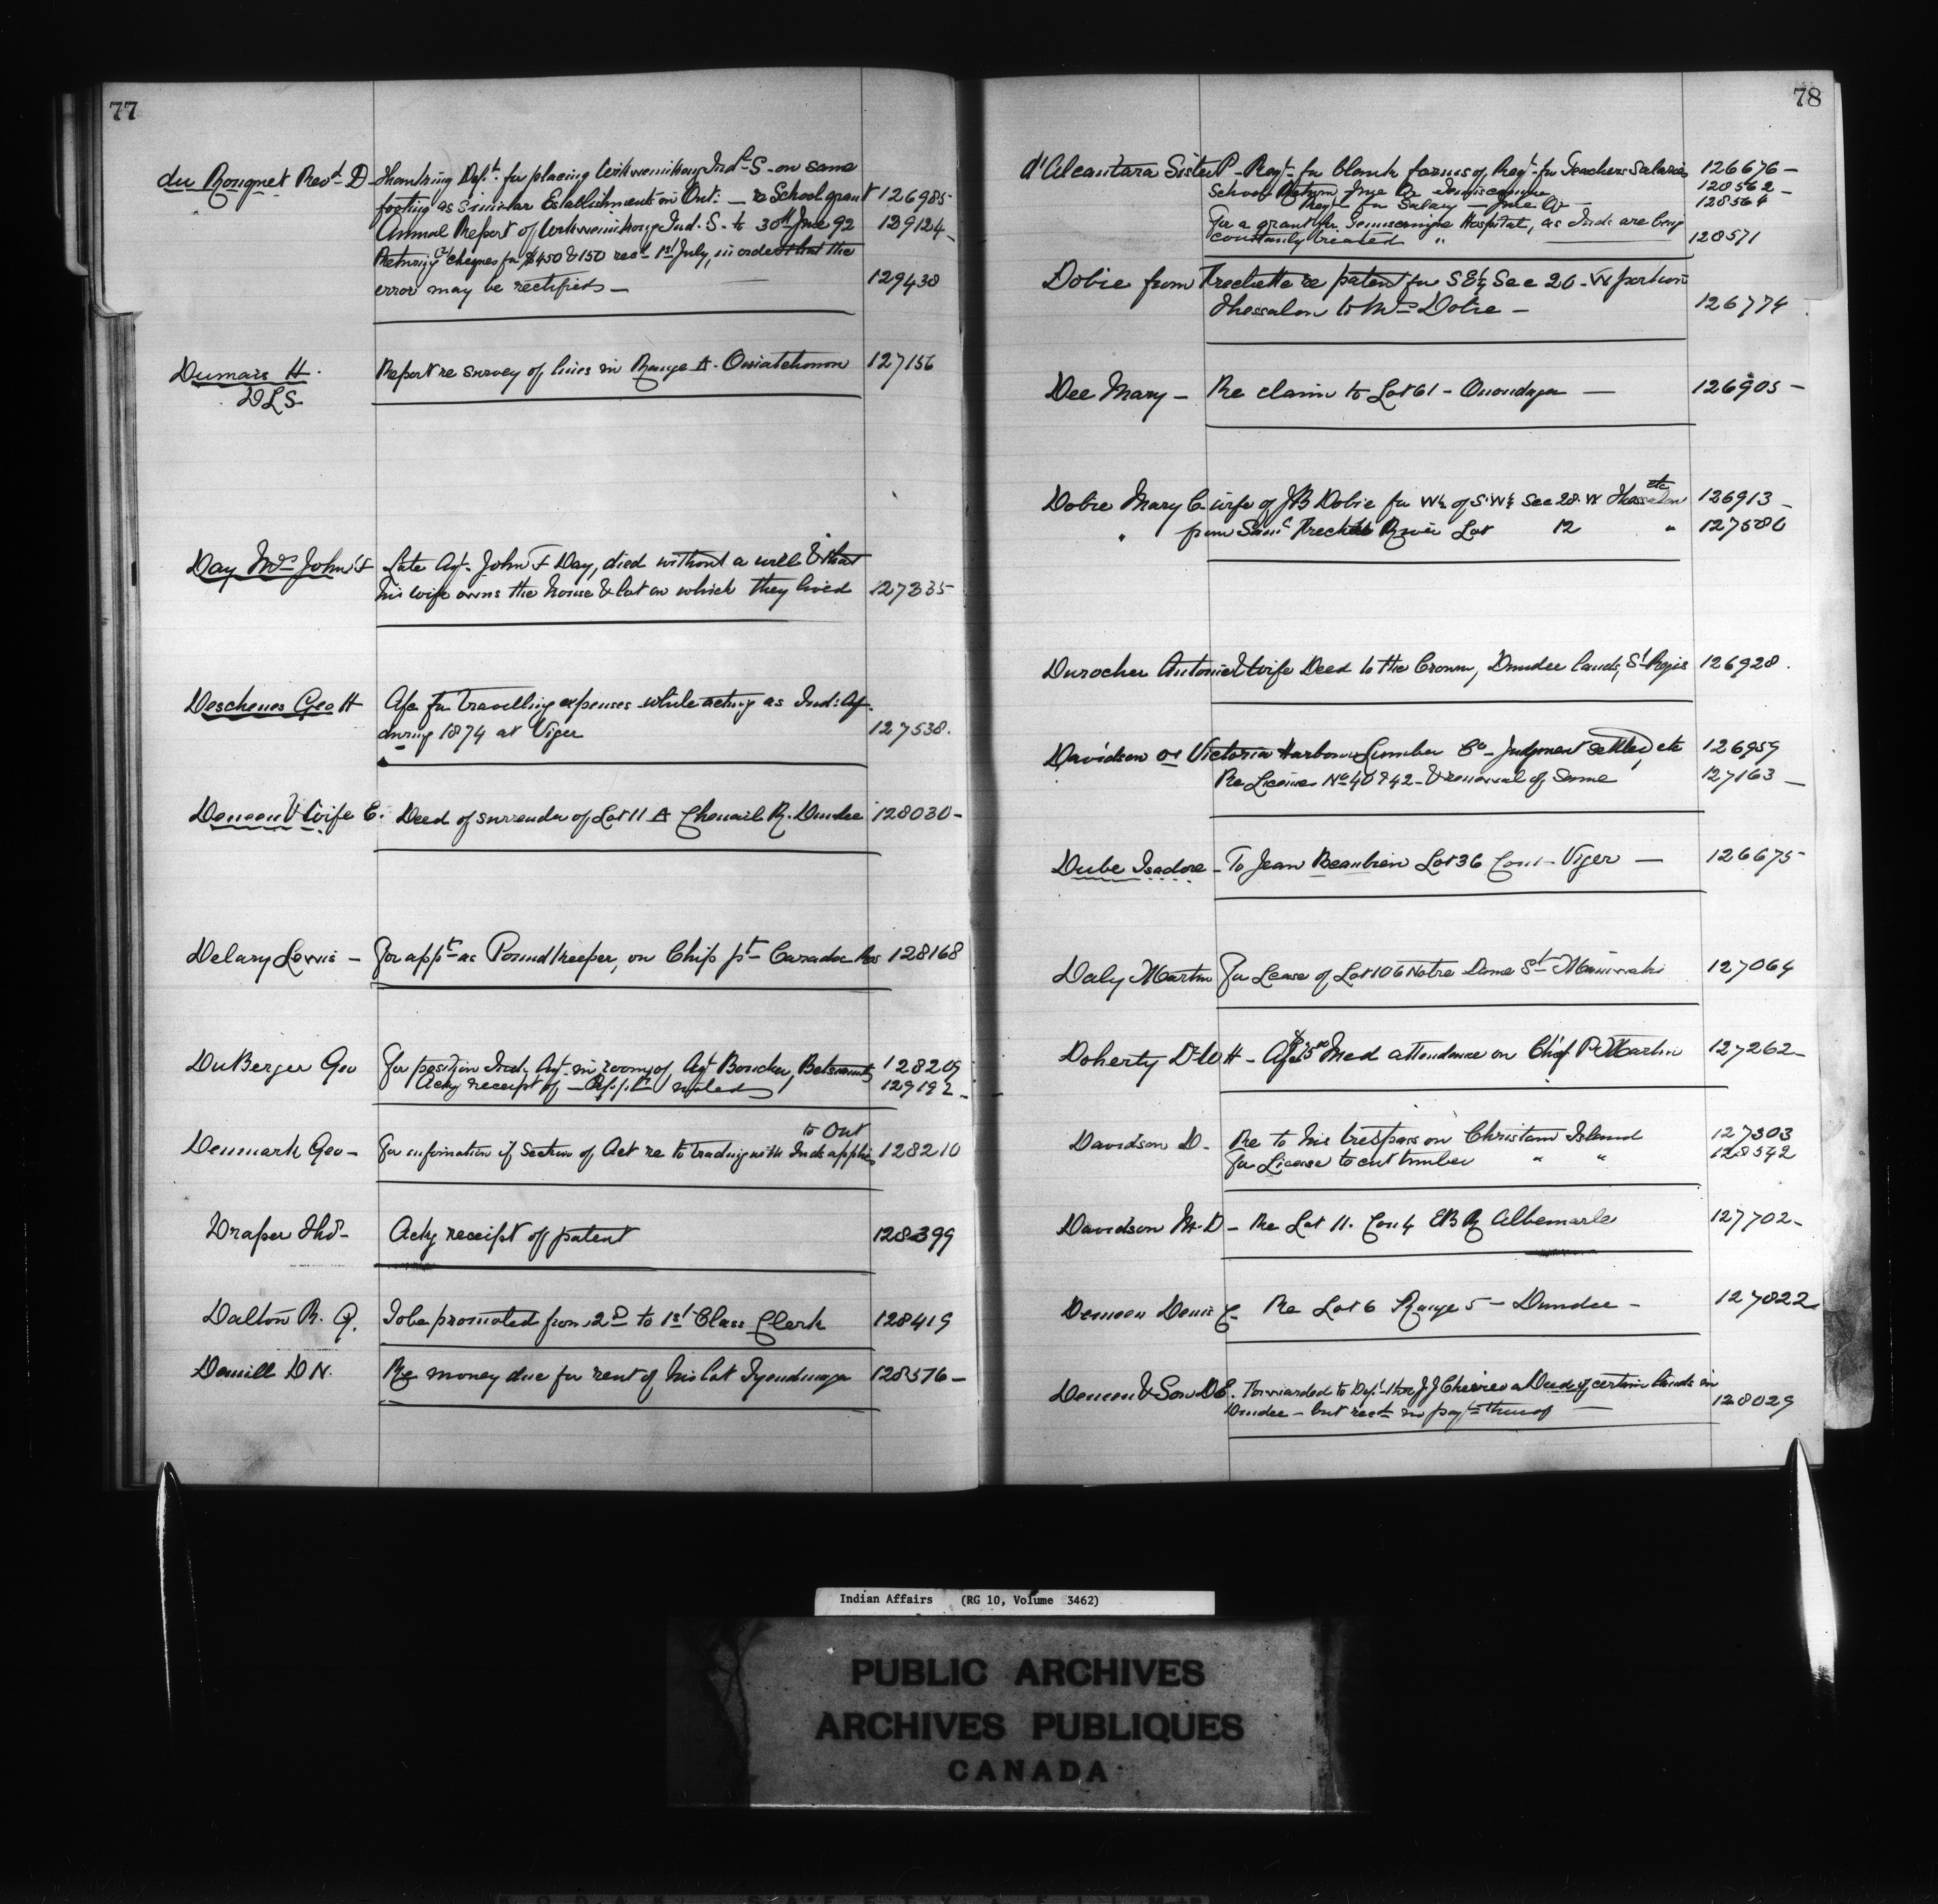 77
du Ronquet Revd. D - Thanking Dept. for placing Wikwemikong Indl. S. on same
footing as similar Establishments in Ont: — re School grant 126985
Annual Report of Wikwemikong Ind. S. to 30th June 92 129124
Returning cheques for $450 & 150 recd 1st July, in order that the
error may be rectified — 129438
Dumais H. Report re survey of lines in Range A. Ouiatchouan 127156
DLS
Day Mrs John F Late Agt. John F Day, died without a will & that
his wife owns the house & lot on which they lived 127335
Deschenes Geo H A/c for travelling expenses while acting as Ind: Ag.
during 1874 at Viger 127538.
Deneen & Wife E. Deed of surrender of Lot 11 A Chenail R. Dundee 128030 -
Delary Lewis - For appt. as Pound Keeper, on Chip pt. Caradoc Res 128168
DuBerger Geo For position Ind. Agt. in room of Agt Boucher, Betsiamits 128209
Ackg receipt of — Applt. noted 129192 -
to Ont
Denmark Geo - For information if Section of Act re to trading with Inds applies 128210
Draper Thos - Ackg receipt of patent 128399
Dalton R. G. To be promoted from 2nd to 1st Class Clerk 128419
Demill D N. Re money due for rent of his lot Tyendinaga 128576 -
78
d'Alcantara Sister P - Reqt. for blank forms of Reqt. for Teachers Salaries 126676 -
School Return June Qr Temiscamingue 128562 -
Reqt. for Salary — June Qr - 128564
For a grant for Temiscamingue Hospital, as Inds. are being
constantly treated " 128571
Dobie from Frechette re patent for S E¼ Sec 20 - W portion
Thessalon to Mrs Dobie - 126774
Dee Mary - Re claim to Lot 61 - Onondaga — 126905 -
etc
Dobie Mary C. wife of JB Dobie for W½ of S.W¼ Sec 28. W Thessalon 126913 -
" from Saml Frechette River Lot 12 " 127580
Durocher Antoine & Wife Deed to the Crown, Dundee lands, St Regis 126928.
Davidson or Victoria Harbour Lumber Co - Judgment settled, etc 126959
Re Licenses No 40 & 42 - & renewal of same 127163 -
Dube Isadore - To Jean Beaubien Lot 36 Con 1 - Viger — 126675
Daly Martin For Lease of Lot 106 Notre Dame St. Maniwaki 127064
Doherty Dr W H - A/c $5.00 Med attendance on Chief P. Martin 127262 -
Davidson D. Re to his trespass on Christian Island 127303
For License to cut timber " " 128542
Davidson M. D - Re Lot 11. Con 4 EBR Albemarle 127702 -
Deneen Denis E. Re Lot 6 Range 5 - Dundee - 127822
Deneen & Son D E. Forwarded to Dept. thro J J Cheirer a Deed of certain lands in
Dundee - but recd. no payt. thereof — 128029
Indian Affairs (RG 10, Volume 3462)
PUBLIC ARCHIVES
ARCHIVES PUBLIQUES
CANADA